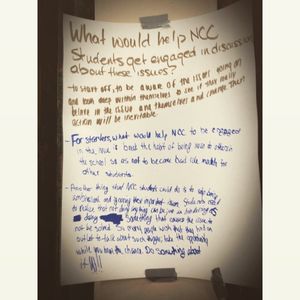 What would help NCC
Students get engaged in discussion
about these issues?
- to start off, to be aware of the issues going on
and look deep within themselves to see if they really
believe in the issue and themselves and change. Then
action will be inevitable.
- For starters, what would help NCC to be engaged
in the is
the school so as not to become bad role models for
other students.
- Another thing that NCC students could do is to
and their important. Students need
to realize that not doing anything can be just as
as doing something that causes the issue to
not be solved. So many people wish that they had an
outlet to talk about such things, take the opportunity
while you have the chance. Do something about
it!!!